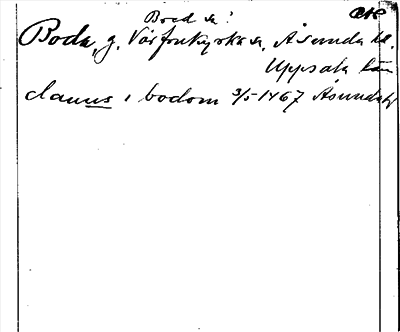 Bred sn!
Boda, g. Vårfrukyrka sn. Åsunda hd.
Uppsala län
clauus i bodom 3/5 1467 Åsundahd